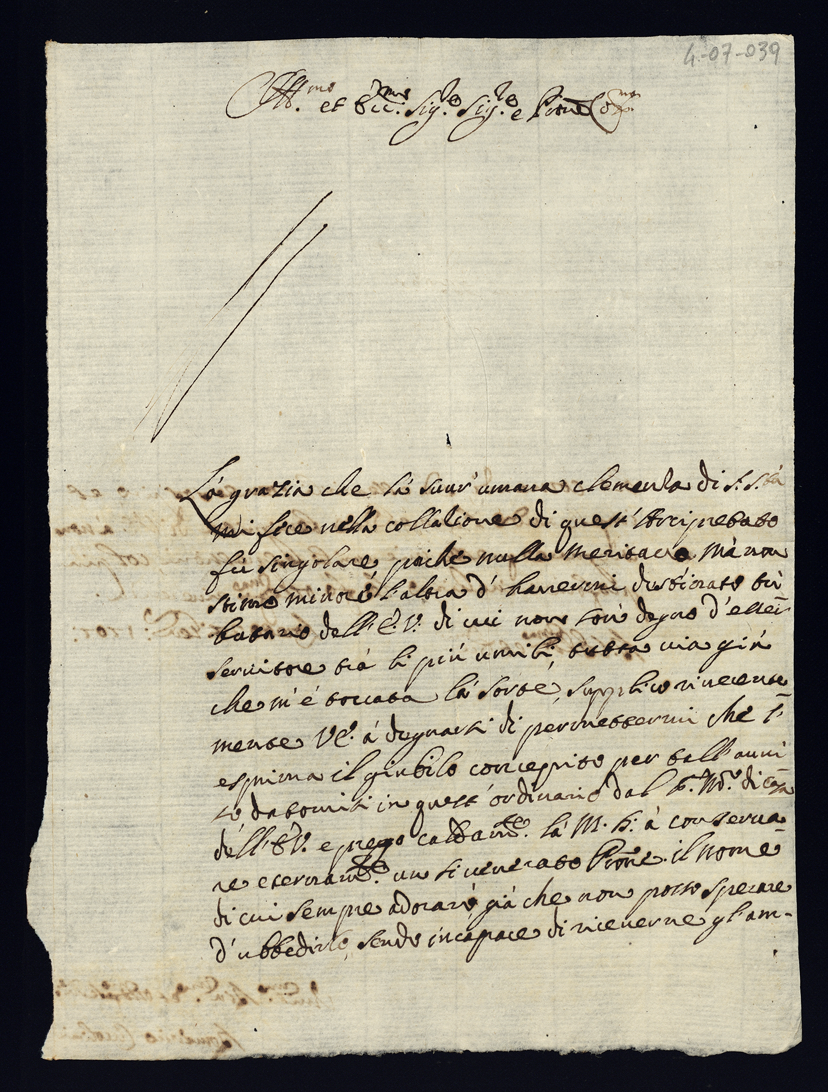 4-07-039
Ill.mo et Ecc.mo Sig.re Sig.re e Prone Col.mo
La grazia che la sour'umana clemenza di S. S.tà
mi fece nella collatione di quest'Arcipretato
fù singolare, poiche nulla meritavo, mà non
stimo minor l'altra d'havermi destinato tri
butario dell'E. V. di cui non son degno d'esser
servitore trà li più umili, tutta via già
che m'è toccata la sorte, supplico riverente
mente V. E. à degnarsi di permettermi che l'
esprima il giubilo concepito per tall'auui
so datomisi in quest'ordinario dal di casa
dell'E. V. e prego caldam.te la M. à conserva
re eternam.te un si venerato Prone. il nome
di cui sempre adorarò, già che non posso sperare
d'ubbedirlo, sendo incapace di riceverne gl'am-